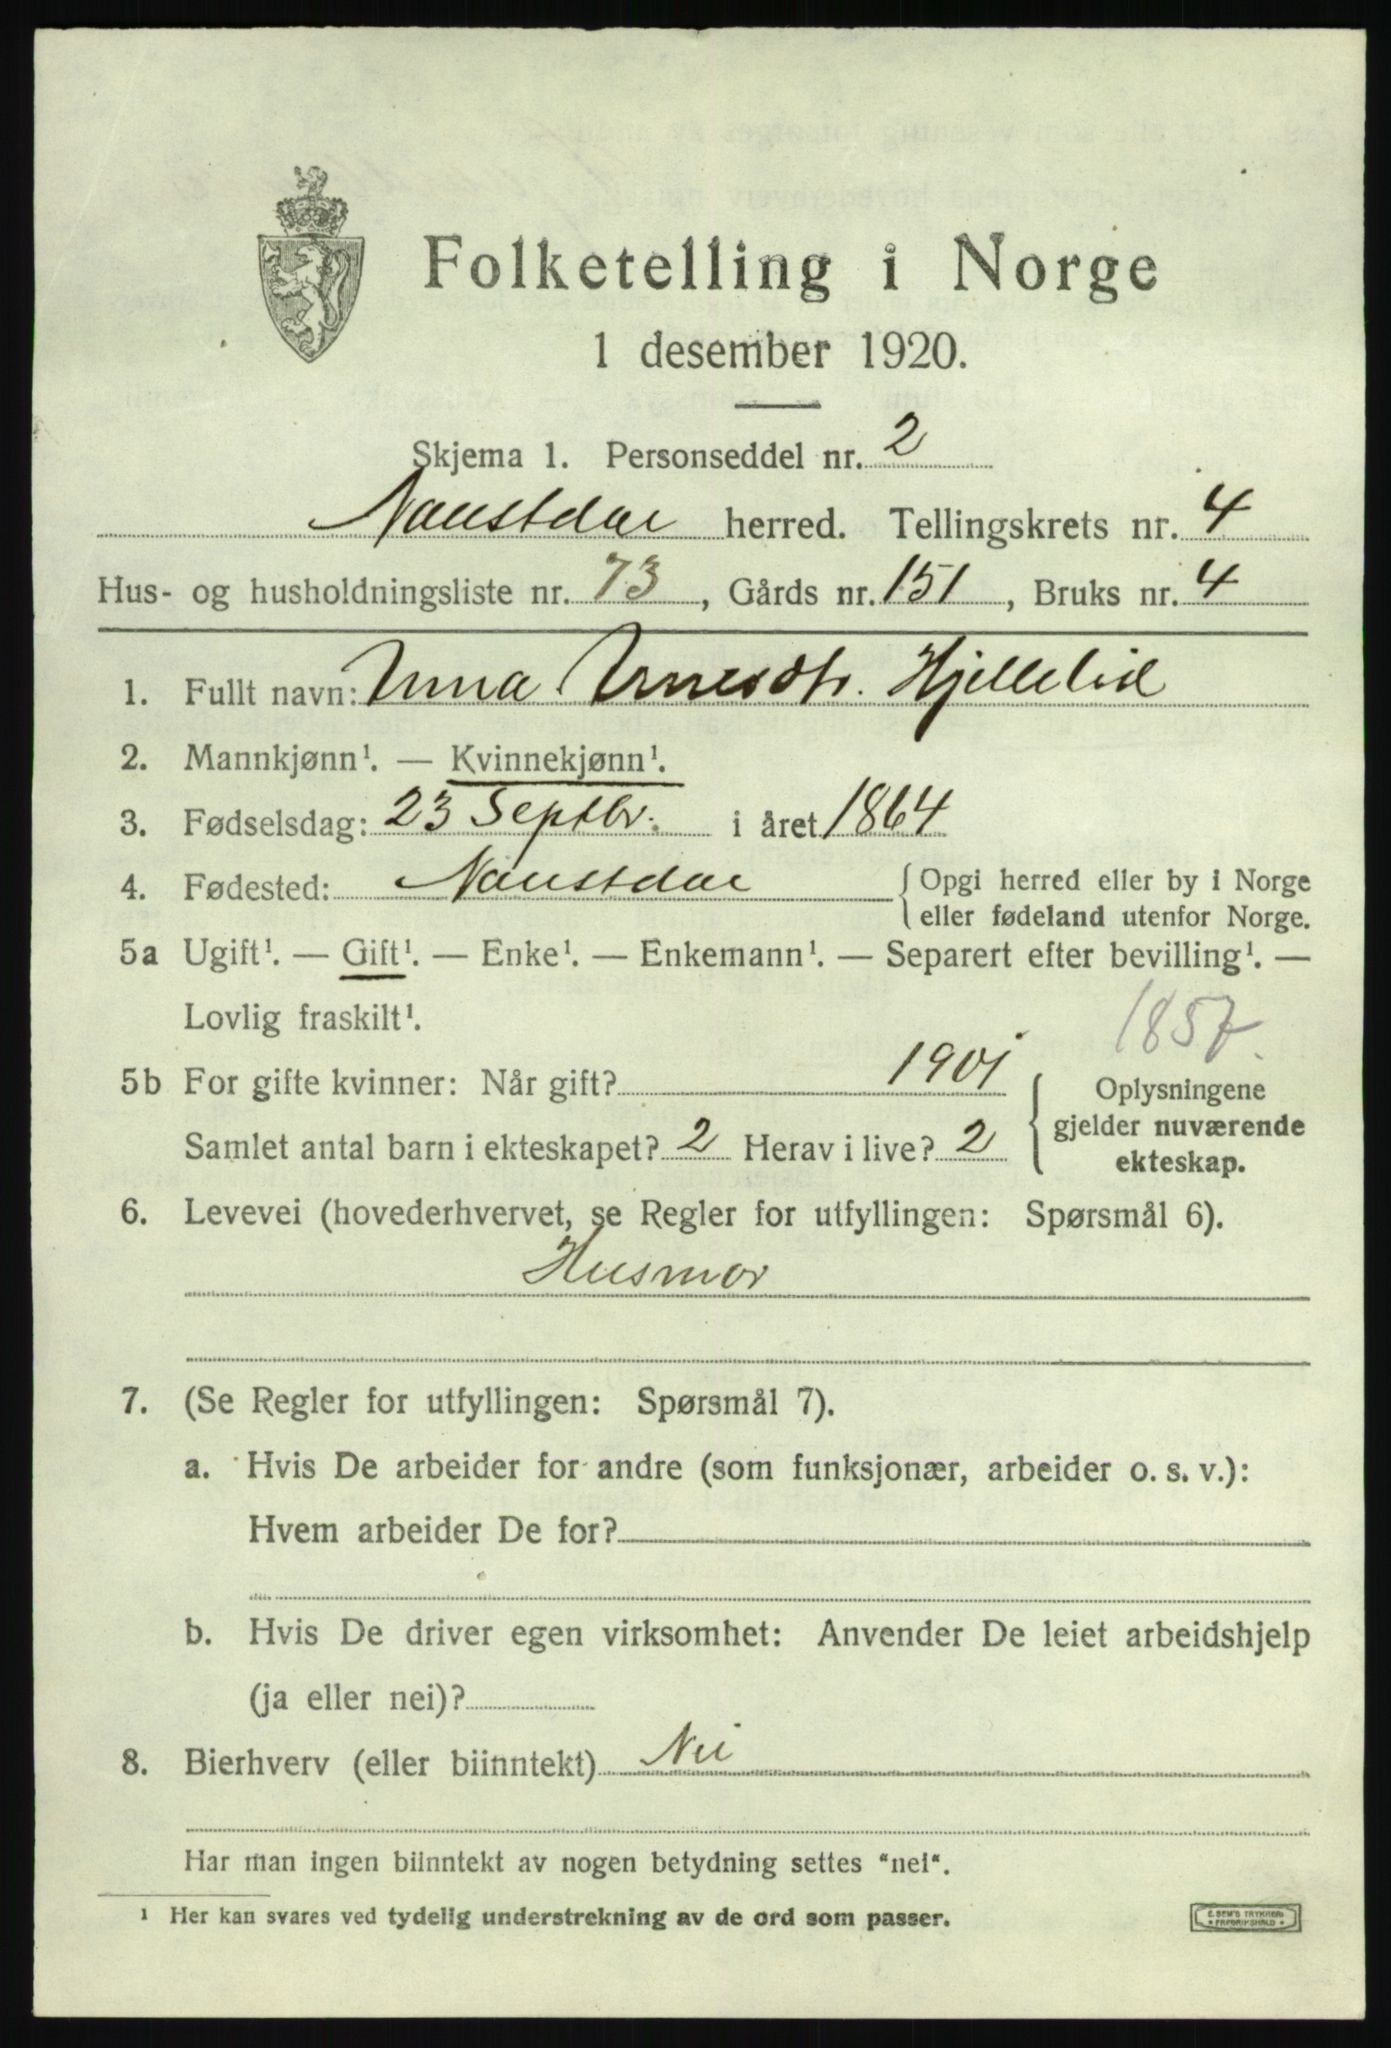 Folketelling i Norge
1 desember 1920.
Skjema 1. Personseddel nr. 2
Naustdal herred. Tellingskrets nr. 4
Hus- og husholdningsliste nr. 73, Gårds nr. 151, Bruks nr. 4
1. Fullt navn: Anna Arnesdtr. Hjellelid
2. Mannkjønn¹. — Kvinnekjønn¹.
3. Fødselsdag: 23 Septbr. i året 1864
4. Fødested: Naustdal {Opgi herred eller by i Norge
eller fødeland utenfor Norge.
5a Ugift¹. — Gift¹. — Enke¹. — Enkemann¹. — Separert efter bevilling¹. —
Lovlig fraskilt¹.
1857.
5b For gifte kvinner: Når gift? 1901 { Oplysningene
gjelder nuværende
ekteskap.
Samlet antal barn i ekteskapet? 2 Herav i live? 2
6. Levevei (hovederhvervet, se Regler for utfyllingen: Spørsmål 6).
Husmor
7. (Se Regler for utfyllingen: Spørsmål 7).
a. Hvis De arbeider for andre (som funksjonær, arbeider o. s. v.):
Hvem arbeider De for?
b. Hvis De driver egen virksomhet: Anvender De leiet arbeidshjelp
(ja eller nei)?
8. Bierhverv (eller biinntekt) Nei
Har man ingen biinntekt av nogen betydning settes "nei".
¹ Her kan svares ved tydelig understrekning av de ord som passer.
E. SEM'S TRYKKERI
FREDRIKSHALD